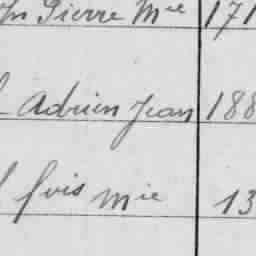 Pierre Mie 171
Adrien Jean 188
fois Mie 13